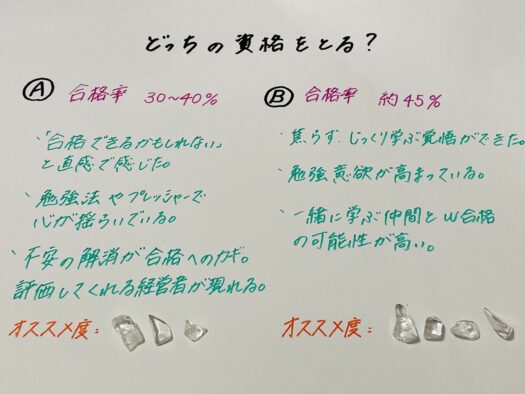 どっちの資格をとる?
Ⓐ 合格率 30~40%
・「合格できるかもしれない」
と直感で感じた。
・勉強法やプレッシャーで
心が揺らいでいる。
・不安の解消が合格へのカギ。
評価してくれる経営者が現れる。
オススメ度:
Ⓑ 合格率 約45%
・焦らず、じっくり学ぶ覚悟ができた。
・勉強意欲が高まっている。
・一緒に学ぶ仲間とW合格
の可能性が高い。
オススメ度: